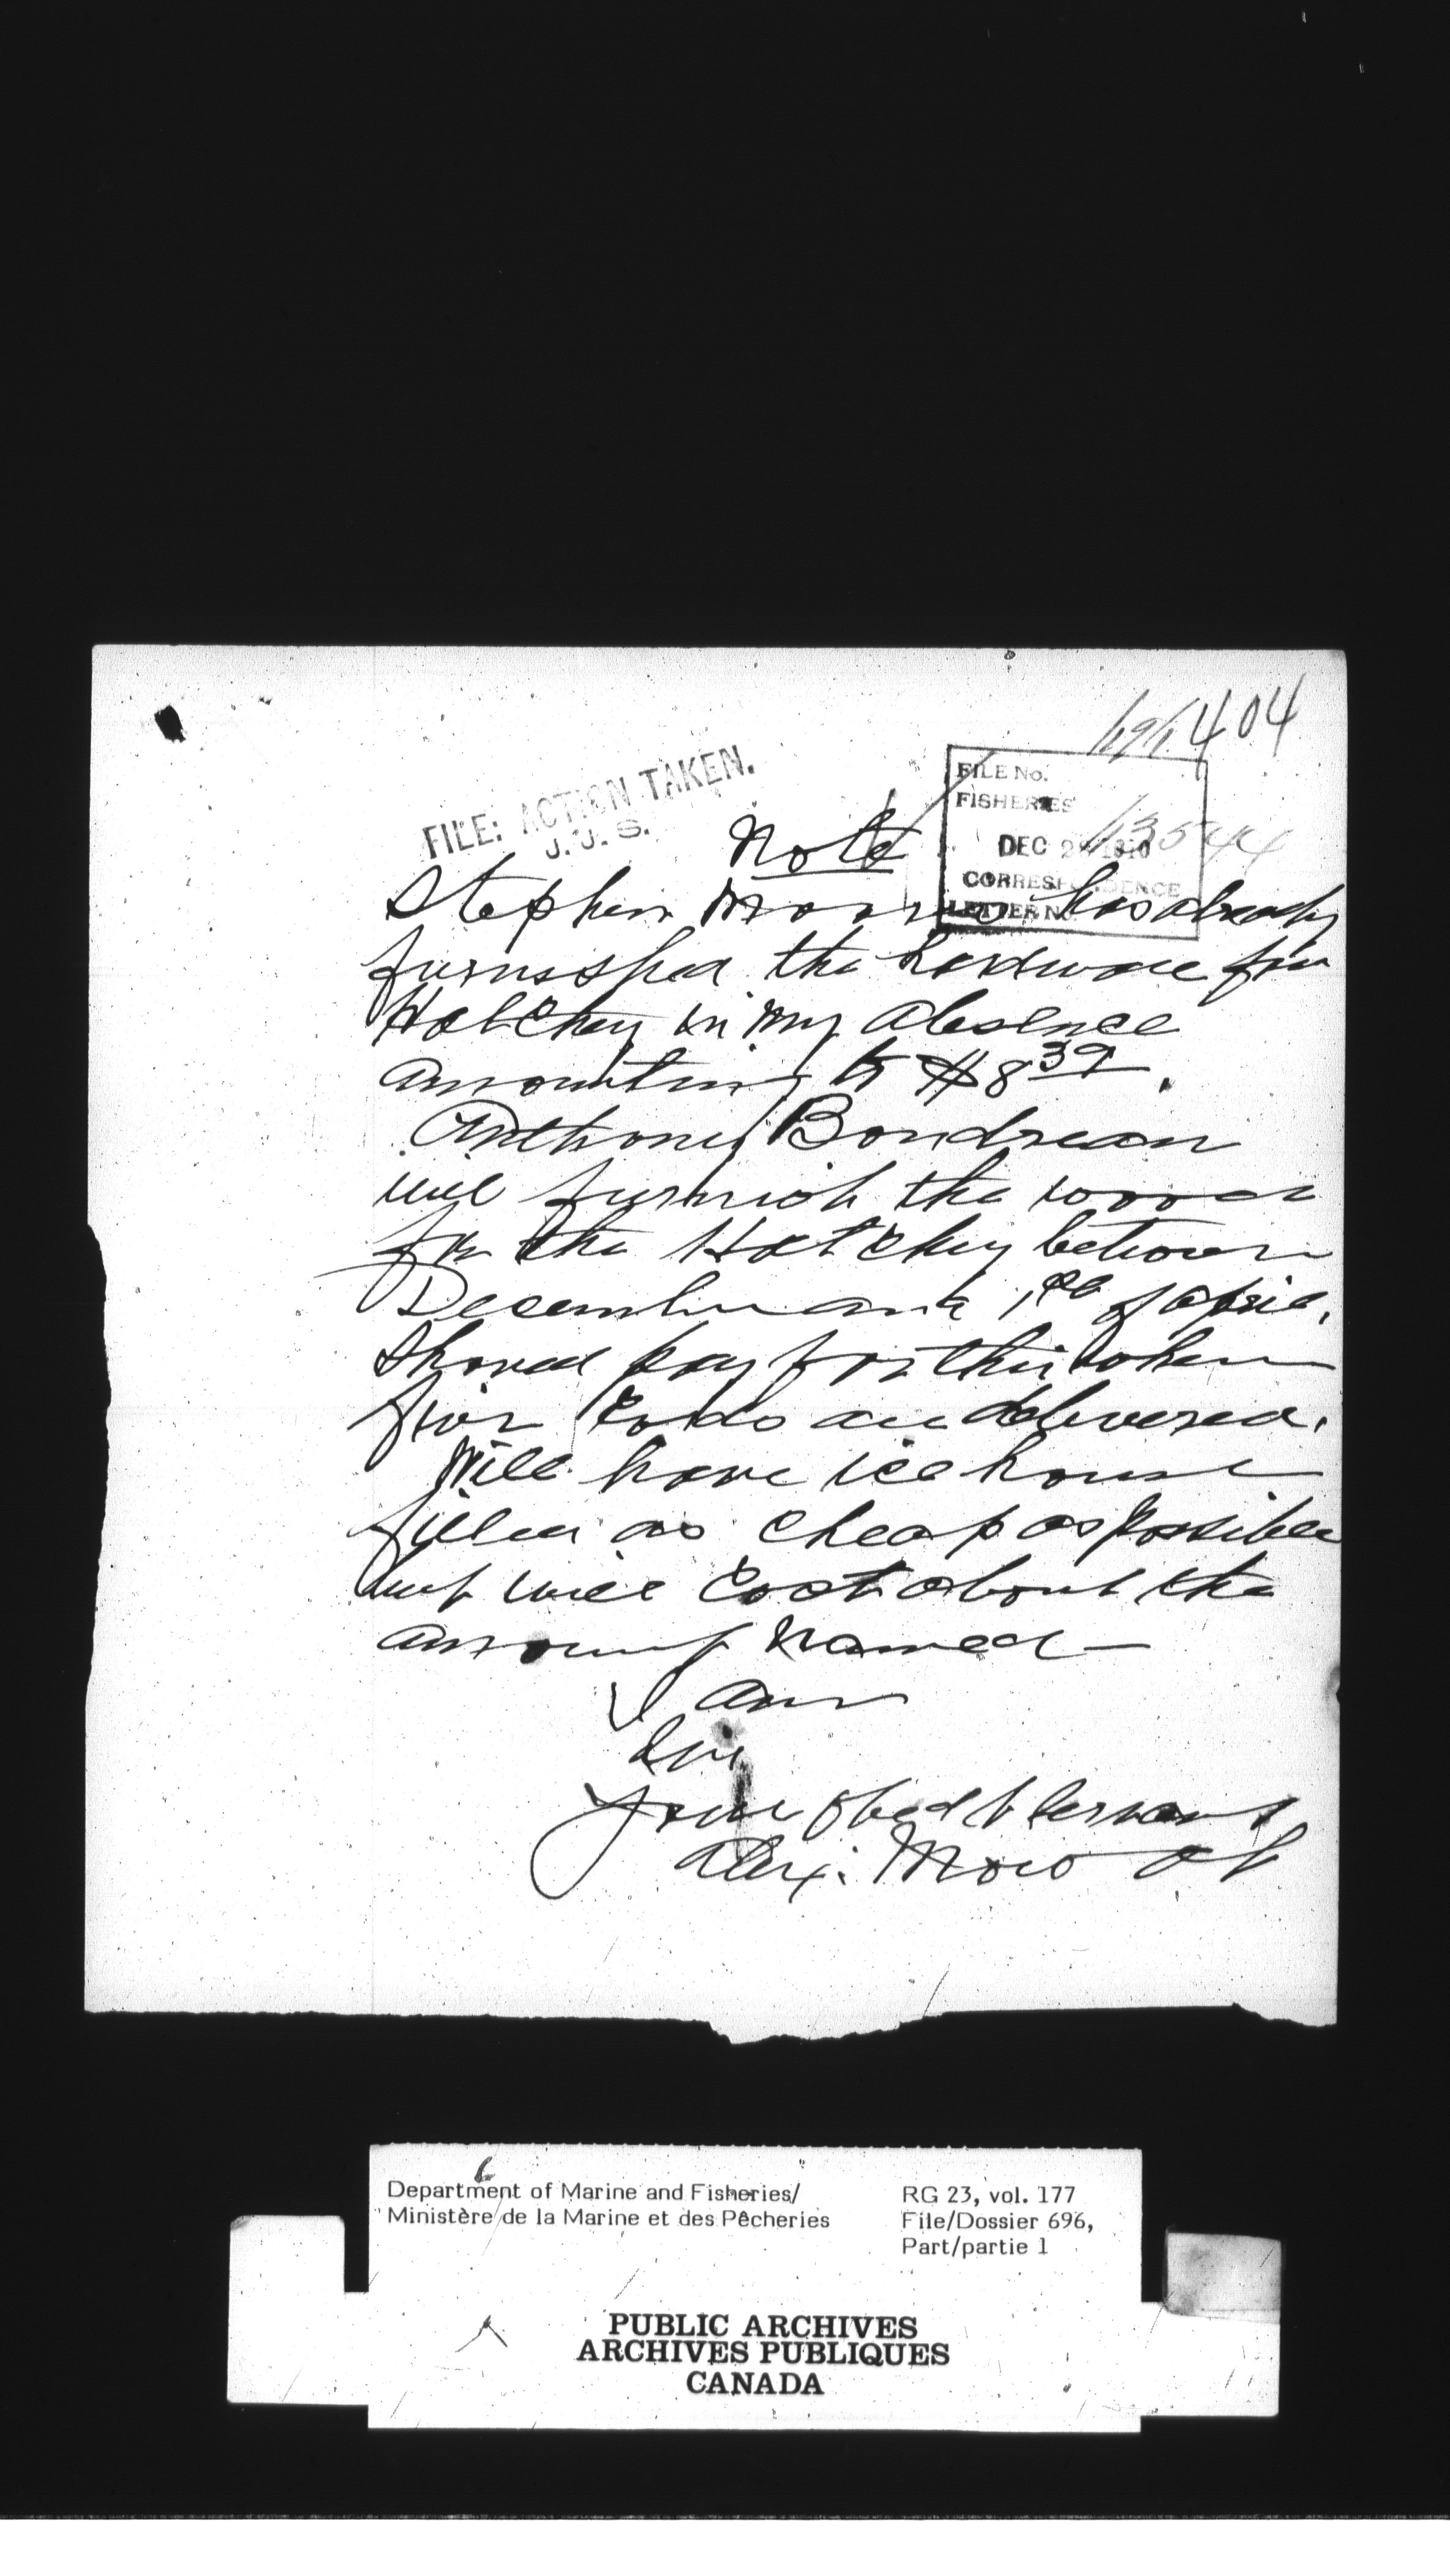 404
FILE: ACTION TAKEN.
J. J. S.
FILE No.
FISHERIES
13544
DEC 1910
CORRESPONDENCE
LETTER No.
Note
Stephen has already
furnished the hardware for
Hatchey in my absence
amounting to $8 39.
Anthony Boudreau
will furnish the wood
for the Hatchey between
December and 1st of April.
Should pay for this when
five Cords are delivered.
Will have ice house
filled as cheap as possible
but will Cost about the
amount named —
I am
Sir
Your Obedt Servant
Alex. Mowat
Department of Marine and Fisheries/
Ministère de la Marine et des Pêcheries
RG 23, vol. 177
File/Dossier 696,
Part/partie 1
PUBLIC ARCHIVES
ARCHIVES PUBLIQUES
CANADA